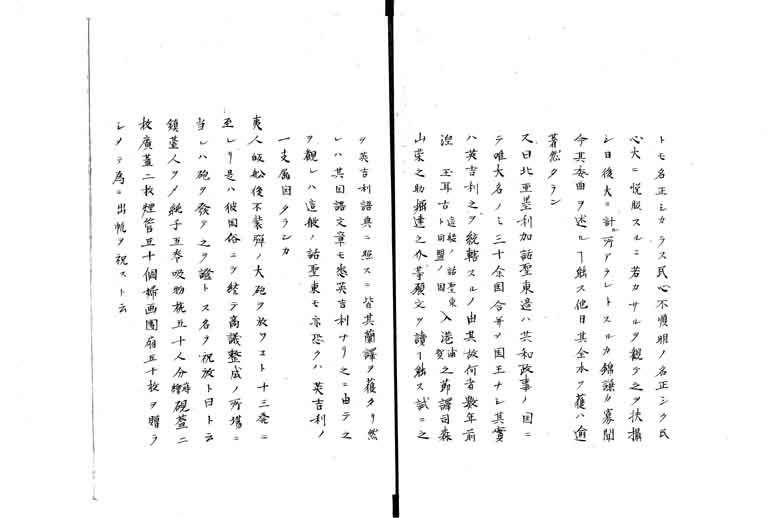 トモ名正シカラス民心不順明ノ名正シク民
心大ニ悦服スルニ若カサルヲ観テ之ヲ扶摂
シ日後大ニ計ル所アラレトスルカ錦謙カ寡聞
今其委曲ヲ述ルヿ能ス他日其全本ヲ獲ハ逾
著然タラン
又曰北亜墨利加話聖東邊ハ共和政事ノ国ニ
テ唯大名ノミ三十余国合并ヲ国王ナレ其實
ハ英吉利之ヲ統轄スルノ由其故何者数年前
涅 玉耳古ト同盟ノ国 這般ノ話聖東 入港浦賀之節譯司森
山栄之助堀達之介等願文ヲ讀ヿ能ス試ニ之
ヲ英吉利語典ニ照スニ皆其蘭譯ヲ獲タリ然
レハ其国語文章モ悉英吉利ナリ之ニ由テ之
ヲ觀レハ這般ノ話聖東モ亦恐クハ英吉利ノ
一支属国タランカ
夷人皈舩後不装彈ノ大砲ヲ放ツヿ十三発ニ
至レリ是ハ彼国俗ニテ総テ商議整成ノ所場ニ
当レハ砲ヲ發テ之ヲ證トス名ヲ祝放ト曰ト云
鎮臺人ヲメ純子五巻吸物椀五十人分蒔繪硯蓋二
枚廣蓋二枚煙管五十個婦画團扇五十枚ヲ贈ラ
シメテ為ニ出帆ヲ祝スト云